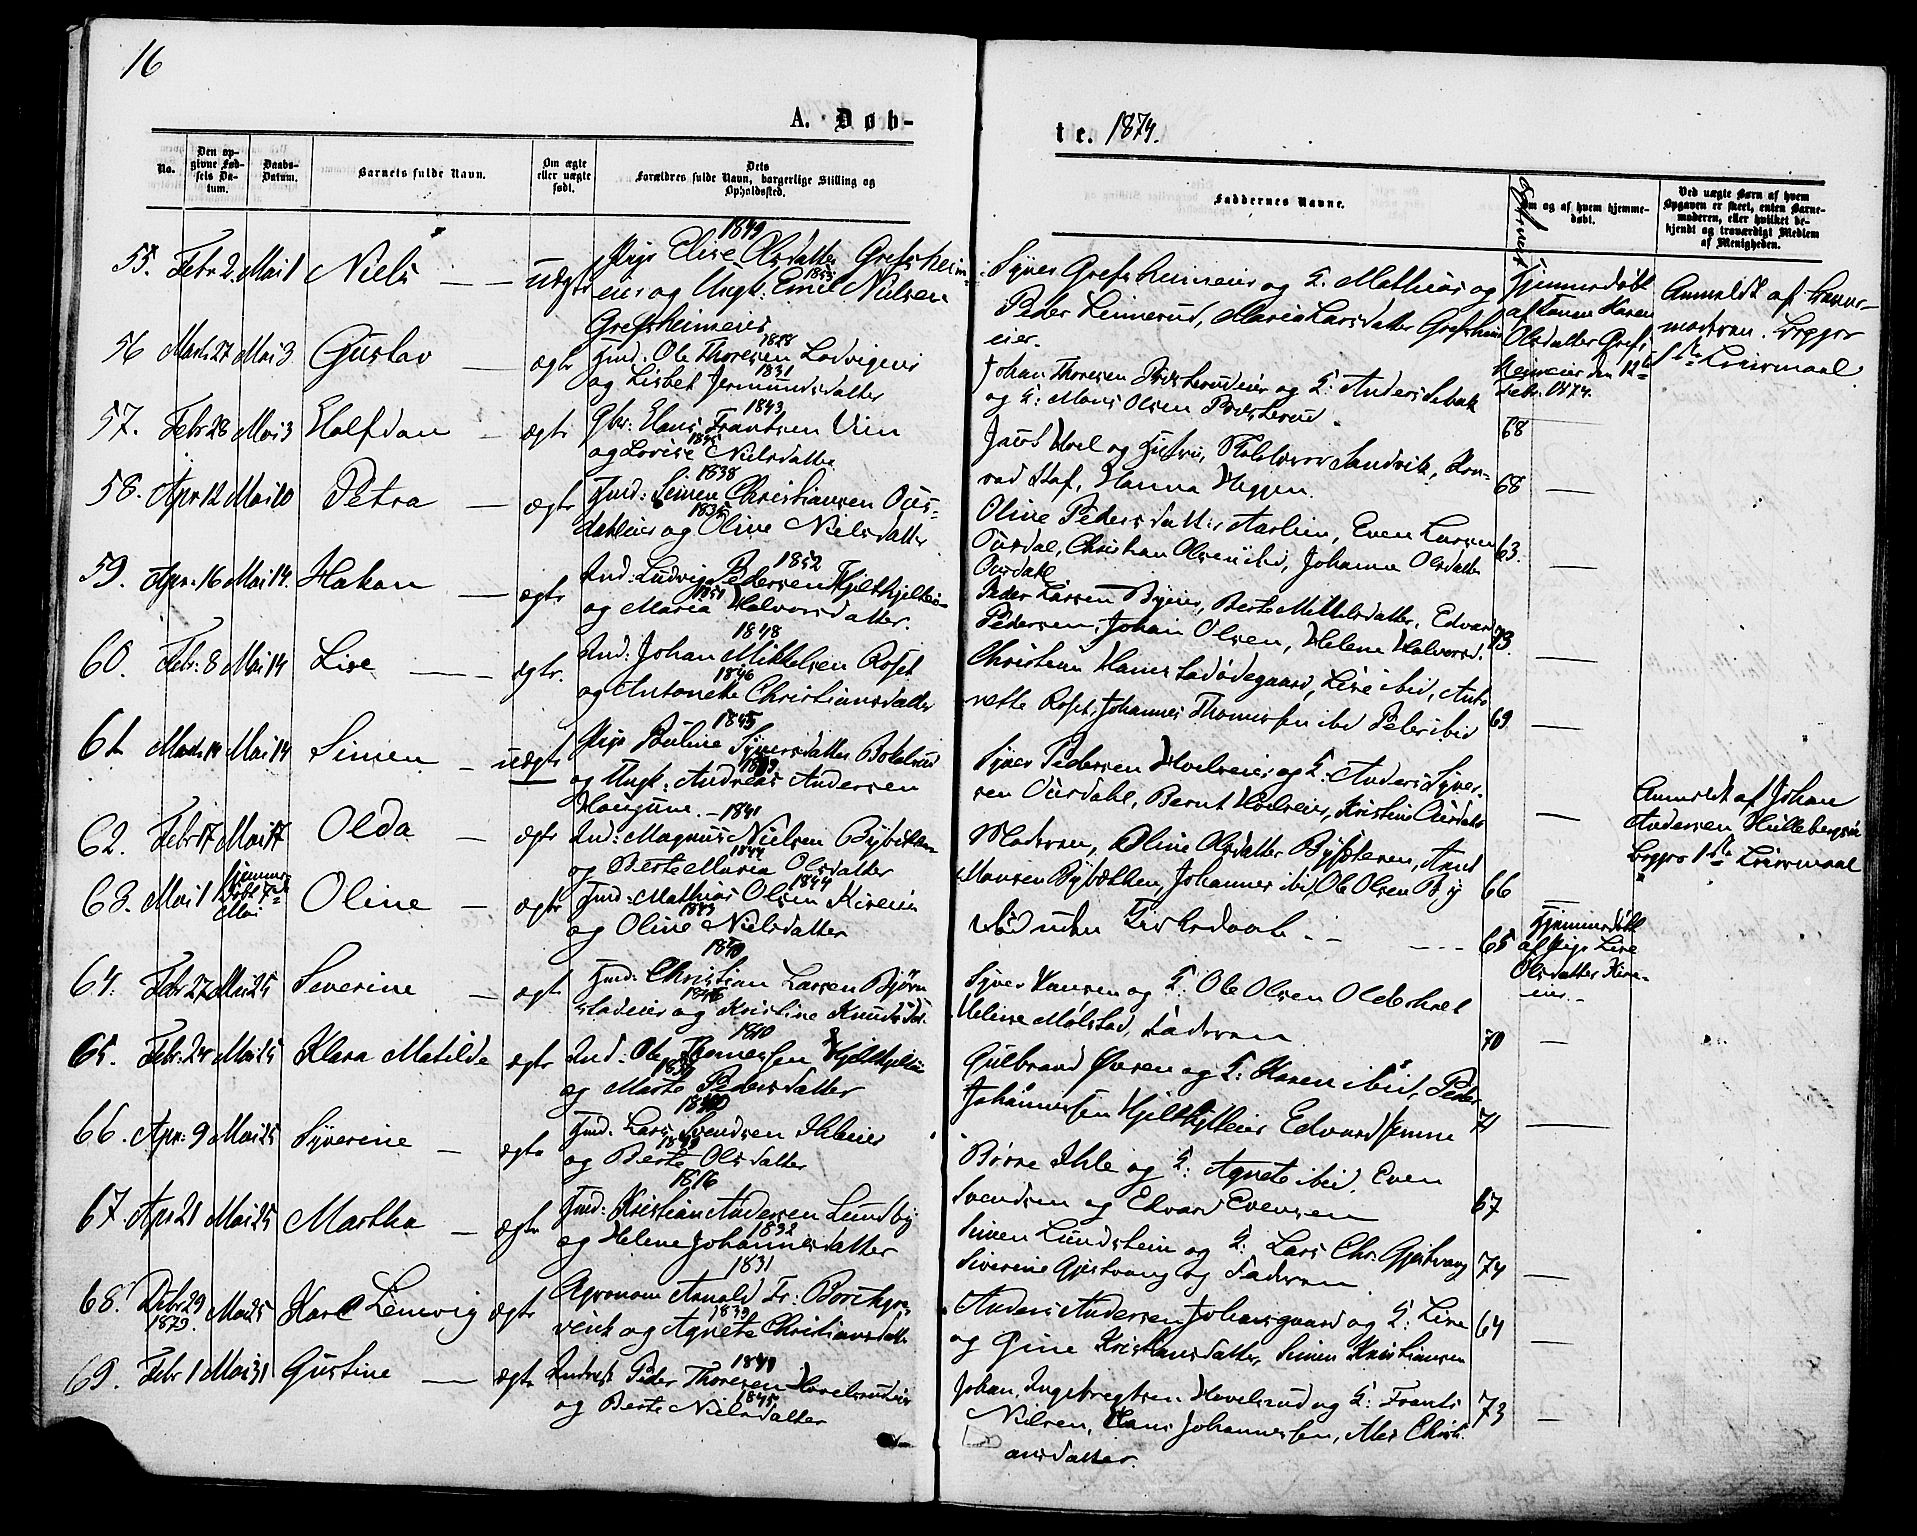 16
A. Døb-
te. 1874.
No.
Den op-
givne Fød-
sels Da-
tum.
Daabs-
Datum.
Barnets fulde Navn.
Om ægte
eller uægte
født.
Dets
Forældres fulde Navn, borgerlige Stilling og
Opholdssted.
Faddernes Navne.
Om og af hvem hjemme-
døbt.
Ved uægte Børn af hvem
Opgaven er skeet, enten Barne-
moderen, eller hvilket be-
kjendt og troværdigt Medlem
af Menigheden.
1849
55. Febr 2. Mai 1 Niels uægte Pige Elise Olsdatter Grefsheim-
eier og Ungk: Emil Nielsen
Grefsheimeier
Syver Grefsheimeier og G. Mathias og
Peder Linnerud, Maria Larsdatter Grefsheim
eier.
Hjemmedøbt
af Konen Karen
Olsdatter Grefs
heimeier den 12te
Febr. 1874.
Anmeldt af Barne-
moderen. Begges
1ste Leiermaal.
1828
56 Marts 27 Mai 3 Gustav ægte Hmd: Ole Thoresen Lodvigeni
1831
og Lisbet Jermundsdatter
Johan Thoresen og G: Anders
og G: Mons Olsen
68
1843
57. Febr 28 Mai 3 Halfdan ægte Gbr: Hans Frantsen Vien
og Lovise Nielsdatter
Hoel og Hustru, Sandvik, Kon-
rad Staf, Hanna Heggen.
68
1838
58. Apr 12 Mai 10 Petra ægte Hmd: Simen Christiansen Ous-
1835
dahleier og Oline Nielsdatter
Oline Pedersdatter Aaslien, Even Larsen
Ousdal, Christian Olsen ibid, Johanne Olsdatter
Ousdahl
63.
1852
59. Apr. 16 Mai 14. Hakon ægte Ind: Ludvig Pedersen Hjelthjelleie-
1851
og Maria Halvorsdatter.
Peder Larsen Byeier, Berte Mikkelsdatter, Edvard
Pedersen, Johan Olsen, Helene Halvorsd.
73.
1848
60. Febr: 8 Mai 14 Lise ægte. Ind: Johan Mikkelsen Roset
1846
og Antonette Christiansdatter
Christian Hamerstadødegaard, Lise ibid, Anto
nette Roset, Johannes Thomessen ibid Peter ibid
69
1855
61. Marts 14 Mai 14 Simen uægte Pige Pauline Syversdatter Botelsrud
og Ungk: Andreas Andersen
Haugune.
Syver Pedersen Hoelseier og G. Anders Syver-
sen Ousdahl, Bernt Hoelseier, Kristine Ousdahl
Anmeldt af Johan
Andersen Hullebergseie
Begges 1ste Leiermaal
1841
62. Febr 17 Mai 17 Olda ægte Ind: Magnus Nielsen Bybekken
1844
og Berte Maria Olsdatter
Moderen, Oline Olsdatter Bysæteren, Anne
Hansen Bybekken, Johannes ibid, Ole Olsen By
66
1844
63. Mai 1 Hjemme-
døbt 7de
Mai Oline ægte Hmd: Mathias Olsen Kiseeier
1843
og Oline Nielsdatter
Død uden Kirkedaab.
65
Hjemmedøbt
af Pige Lise
Olsdatter Kise-
eier.
64. Febr 27 Mai 25 Severine ægte Hmd: Christian Larsen Bjørn
stadeier og Kristine Knudsdtr
Syver Hansen og G. Ole Olsen Olderhoel
Helene Mølstad, Faderen
70
1840
65. Febr. 24 Mai 25 Klara Matilde ægte Ind: Ole Tomessen Hjelthjelleie
og Marte Pedersdatter
Gulbrand Øversen og G: Karen ibid, Peder
Johannessen Hjelthjelleier Edvard Jemne
71
66. Apr: 9 Mai 25 Syverine ægte Hmd. Lars Svendsen Ihleeier
og Berte Olsdatter
Børre Ihle og G: Agnete ibid. Even
Svendsen og Edvard Evensen
67
1816
67. Apr 21 Mai 25 Martha ægte Hmd: Kristian Andersen Lundby
1832
og Helene Johannesdatter
Simen Lundstein og G: Lars Chr. Gjestvang
Severine Gjestvang og Faderen
74
1831
68. Debr 29
1873. Mai 25 Karl Lemvig ægte Agronom Arnold Fr: Borchgre-
1839
vink og Agnete Christiansdatter
Anders Andersen Johansgaard og G: Lise
og Gine Kristiansdatter, Simen Kristiansen
64
69. Febr 1 Mai 31 Gustine ægte Indrest Peder Thoresen Hovelsrudeie
1845
og Berte Nielsdatter
Johan Ingebregtsen Hovelsrud og G: Frants
Nilsen, Hans Johannessen, Christi-
ansdatter.
73